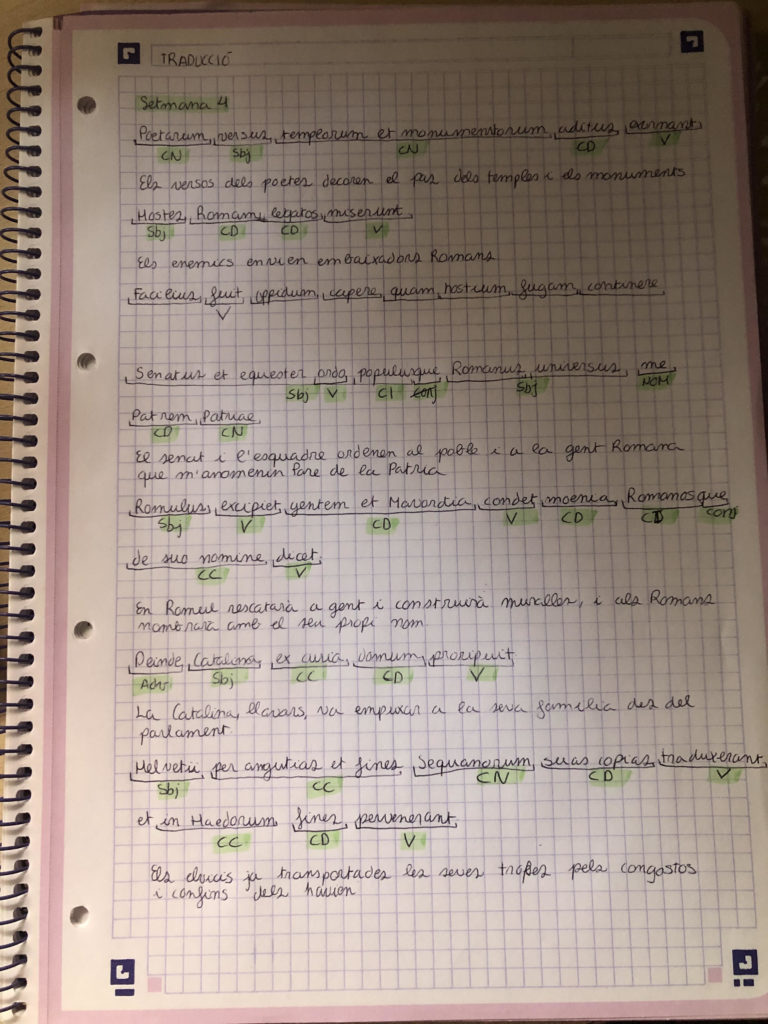 TRADUCCIÓ
Setmana 4
Poetarum versus templorum et monumentorum aditus ornant
CN Sbj CN CD V
Els versos dels poetes decoren el pas dels temples i els monuments
Hostes Romam legatos miserunt
Sbj CD CD V
Els enemics envien embaixadors Romans
Facilius fuit oppidum capere quam hostium fugam continere
V
Senatus et equester ordo populusque Romanus universus me
Sbj V CI conj Sbj NOM
Patrem Patriae
CD CN
El senat i l'esquadre ordenen al poble i a la gent Romana
que m'anomenin Pare de la Patria
Romulus excipiet gentem et Mavortia condet moenia Romanosque
Sbj V CD V CD CD conj
de suo nomine dicet
CC V
En Romul rescatarà a gent i construirà muralles, i als Romans
nombrarà amb el seu propi nom
Deinde Catalina ex curia domum proripuit
Adv Sbj CC CD V
La Catalina, llavors, va empuxar a la seva familia des del
parlament
Helvetii per angutias et fines Sequanorum suas copias traduxerant
Sbj CC CN CD V
et in Haedorum fines pervenerant
CC CD V
Els ja transportades les seves tropes pels congostos
i confins dels